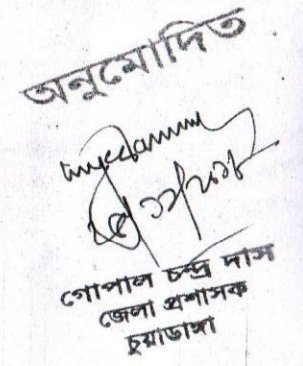 অনুমোদিত
গোপাল চন্দ্র দাস
জেলা প্রশাসক
চুয়াডাঙ্গা